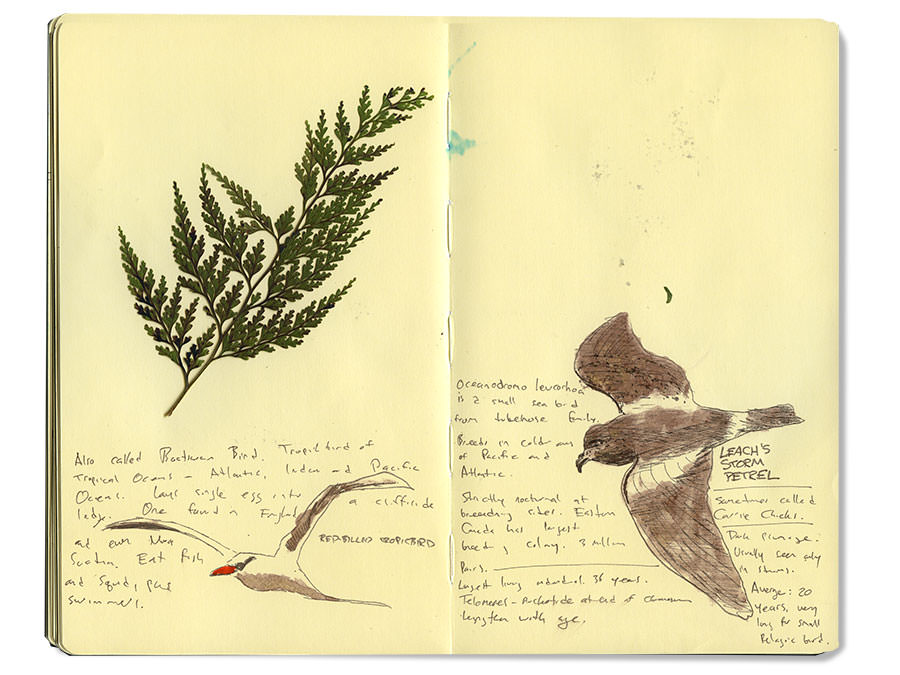 Also called Boatswain Bird. Tropicbird of
Tropical Oceans – Atlantic, Indian and Pacific
Oceans. Lays single egg into a cliffside
ledge. One found in England
and even Nova
Scotia. Eat fish
and squid, poor
swimmers.
RED-BILLED TROPICBIRD
Oceanodroma leucorhoa
is a small sea bird
from tubenose family.
Breeds in cold areas
of Pacific and
Atlantic.
Strictly nocturnal at
breeding sites. Eastern
Canada has largest
breeding colony. 3 million
Pairs.
Largest living individual. 36 years.
Telomeres – nucleotide at end of chromosome
lengthen with age.
LEACH'S
STORM
PETREL
Sometimes called
Carrie Chicks.
Dark plumage.
Usually seen only
in storms.
Average: 20
years, very
long for small
Pelagic bird.